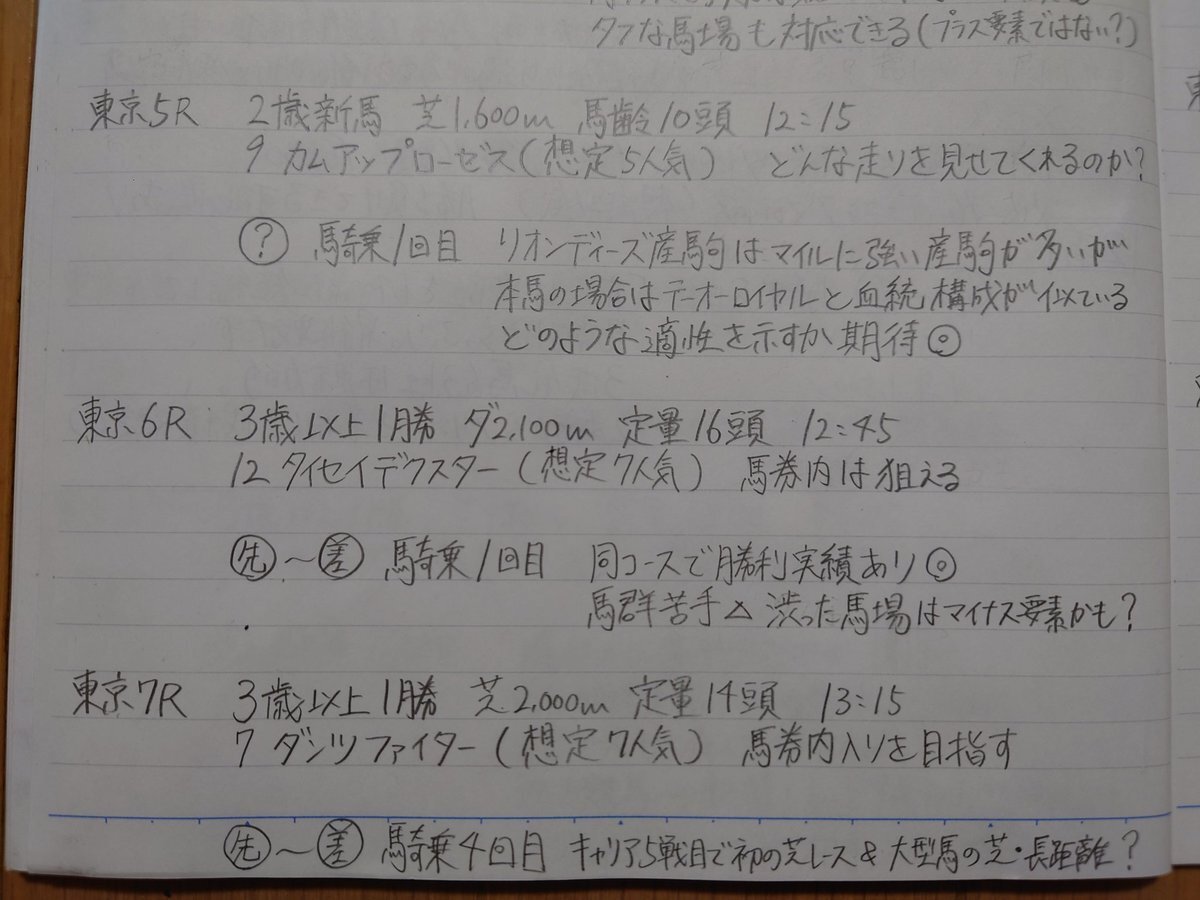 タフな馬場も対応できる(プラス要素ではない?)
東京5R 2歳新馬 芝1,600m 馬齢10頭 12:15
9 カムアップローゼス(想定5人気) どんな走りを見せてくれるのか?
? 騎乗1回目 リオンディーズ産駒はマイルに強い産駒が多いが
本馬の場合はテーオーロイヤルと血統構成が似ている
どのような適性を示すか期待◎
東京6R 3歳以上1勝 ダ2,100m 定量16頭 12:45
12 タイセイデクスター(想定7人気) 馬券内は狙える
先〜差 騎乗1回目 同コースで勝利実績あり◎
馬群苦手△ 渋った馬場はマイナス要素かも?
東京7R 3歳以上1勝 芝2,000m 定量14頭 13:15
7 ダンツファイター(想定7人気) 馬券内入りを目指す
先〜差 騎乗4回目 キャリア5戦目で初の芝レース & 大型馬の芝・長距離?